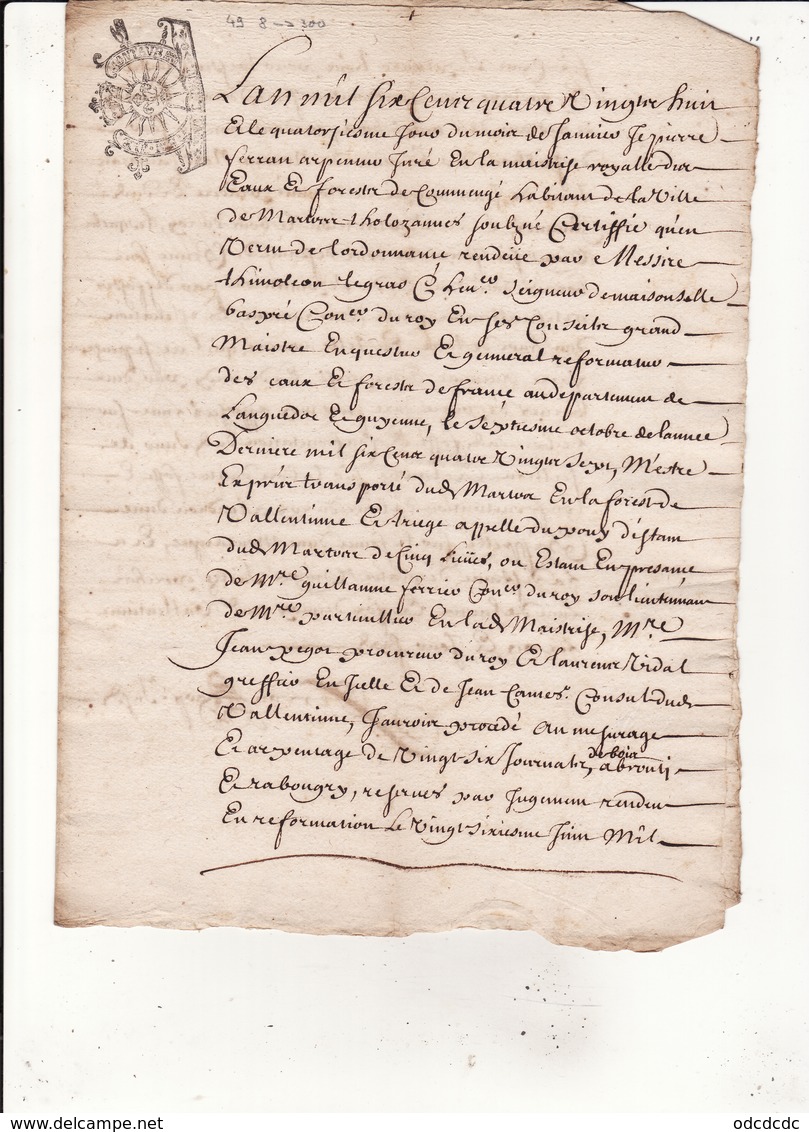 49 8 -> 300
MONTAUBAN
Lan mil six Cens quatre Vingts huit
Et le quatorsiesme Jour du mois de Janvier Je pierre
ferran arpenteur Juré En la maistrise royalle des
Eaux Et forests de Commenge habitant de la Ville
de Martres tholozannes soubzné Certiffie qu'en
Vertu de lordonnance rendeue par Messire
thimoleon legras Seigneur de maisonselle
du roy En ses Conseils grand
Maistre Enquesteur Et general reformateur
des eaux Et forests de france au departement de
Languedoc Et guyenne, le septiesme octobre de lannee
Derniere mil six Cens quatre Vingts sept, M'estre
Exprés transporté dud Martres En la forest de
Vallentinne Et triege appellé du pouy distant
dud Martres de Cinq Lieües, ou Estant En presance
de Mre guillaume ferrier Con.er du roy son lieutenant
de Mre particullier En lad Maistrise, Mre
Jean pegot procureur du roy Et laurens Vidal
greffier En Jcelle Et de Jean Cames Consul dud
Vallentinne, Jaurois procedé au mesurage
Et arpentage de Vingt six Journals de bois abrouti
Et rabougry, reservés par Jugement rendeu
En reformation Le Vingt sixiesme Juin Mil
odcdcdc